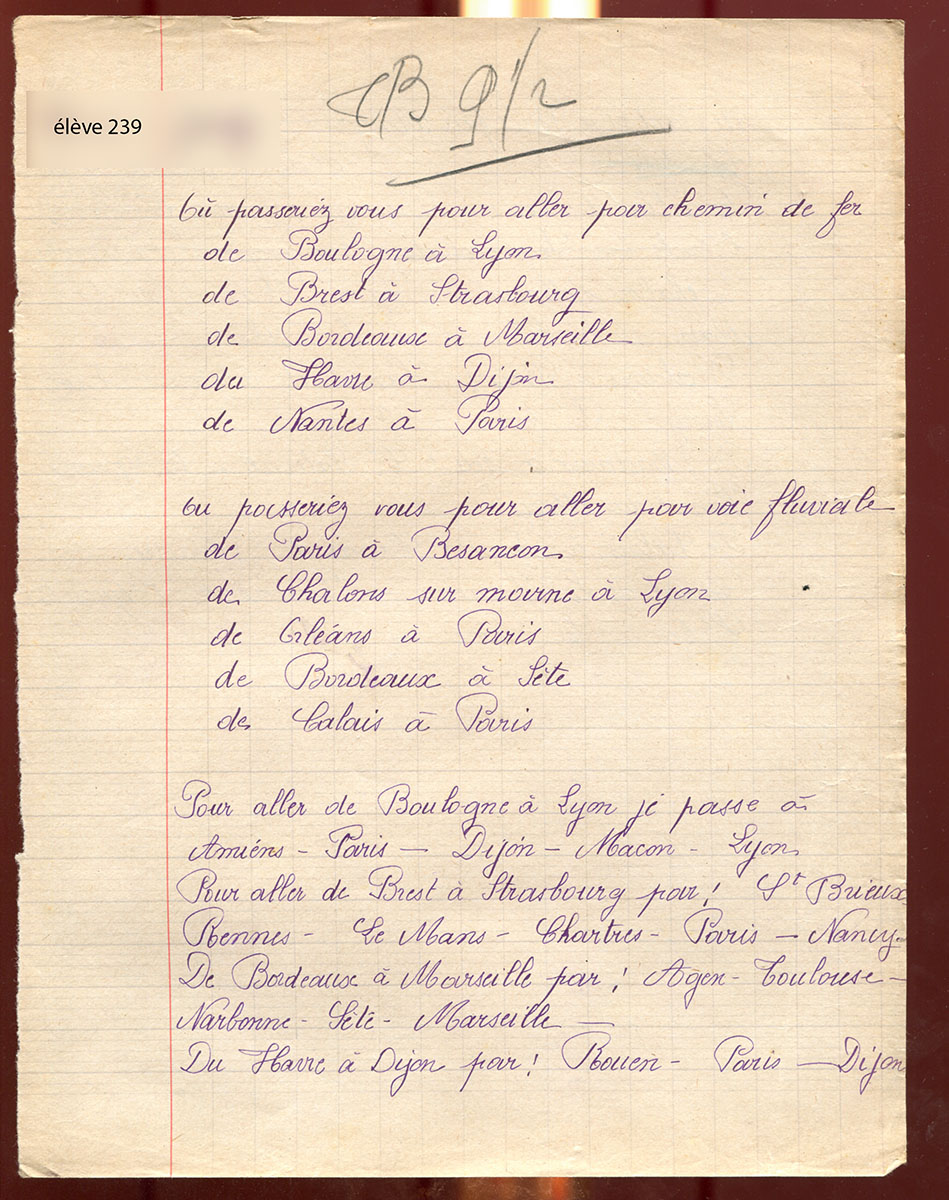 B 9 1/2
élève 239
Où passeriez vous pour aller par chemin de fer
de Boulogne à Lyon
de Brest à Strasbourg
de Bordeaux à Marseille
du Havre à Dijon
de Nantes à Paris
Ou passeriez vous pour aller par voie fluviale
de Paris à Besancon
de Chalons sur marne à Lyon
de Orléans à Paris
de Bordeaux à Sète
de Calais à Paris
Pour aller de Boulogne à Lyon je passe à
Amiéns - Paris - Dijon - Macon - Lyon
Pour aller de Brest à Strasbourg par! St Brieux
Rennes - Le Mans - Chartres - Paris - Nancy -
De Bordeaux à Marseille par! Agen - Toulouse -
Narbonne - Sète - Marseille -
Du Havre à Dijon par! Rouen - Paris - Dijon